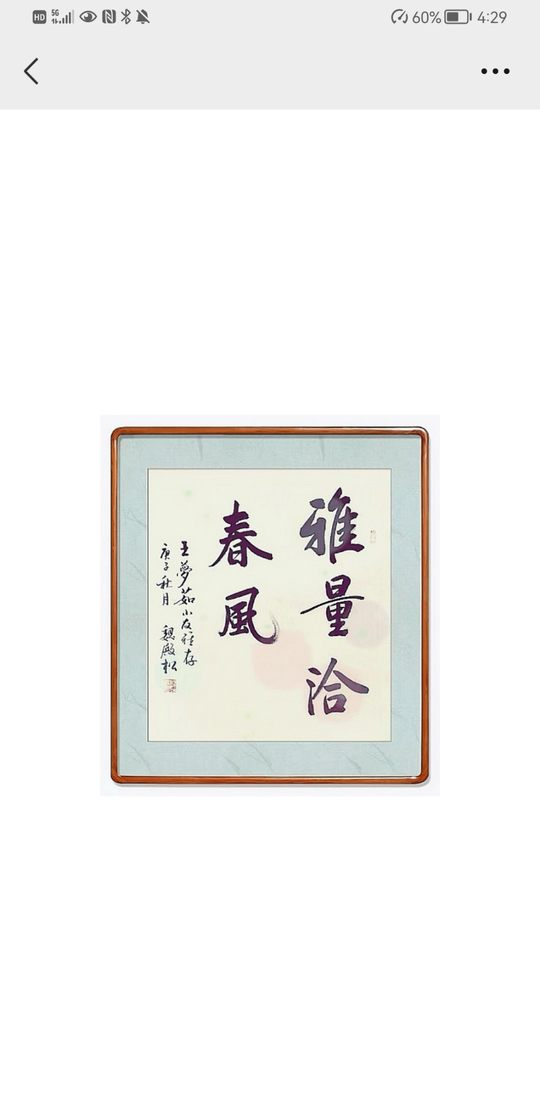 HD 5G 60% 4:29
雅量洽
春風
王夢茹小友雅存
庚子秋月 魏殿松